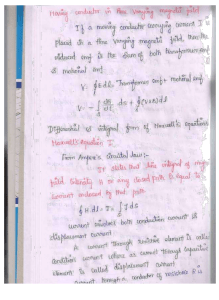 Moving conductor in time varying magnetic field
If a moving conductor carrying current I is
placed in a time varying magnetic field, then the
induced emf is the sum of both transformer emf
& motional emf.
V = ∮E.dL = Transformer emf + motional emf
V = -∫ ∂B/∂t ds + ∮(V×B)dL
Differential & integral form of Maxwell's equations
Maxwell's Equation I:
From Ampere's circuital law:-
It states that line integral of magnetic
field intensity H on any closed path is equal to
current enclosed by that path
∮H.dL = I = ∫J ds
current involves both conduction current &
displacement current
A current through resistive element is called
conduction current where as current through capacitive
element is called displacement current
current through a conductor of resistance R is